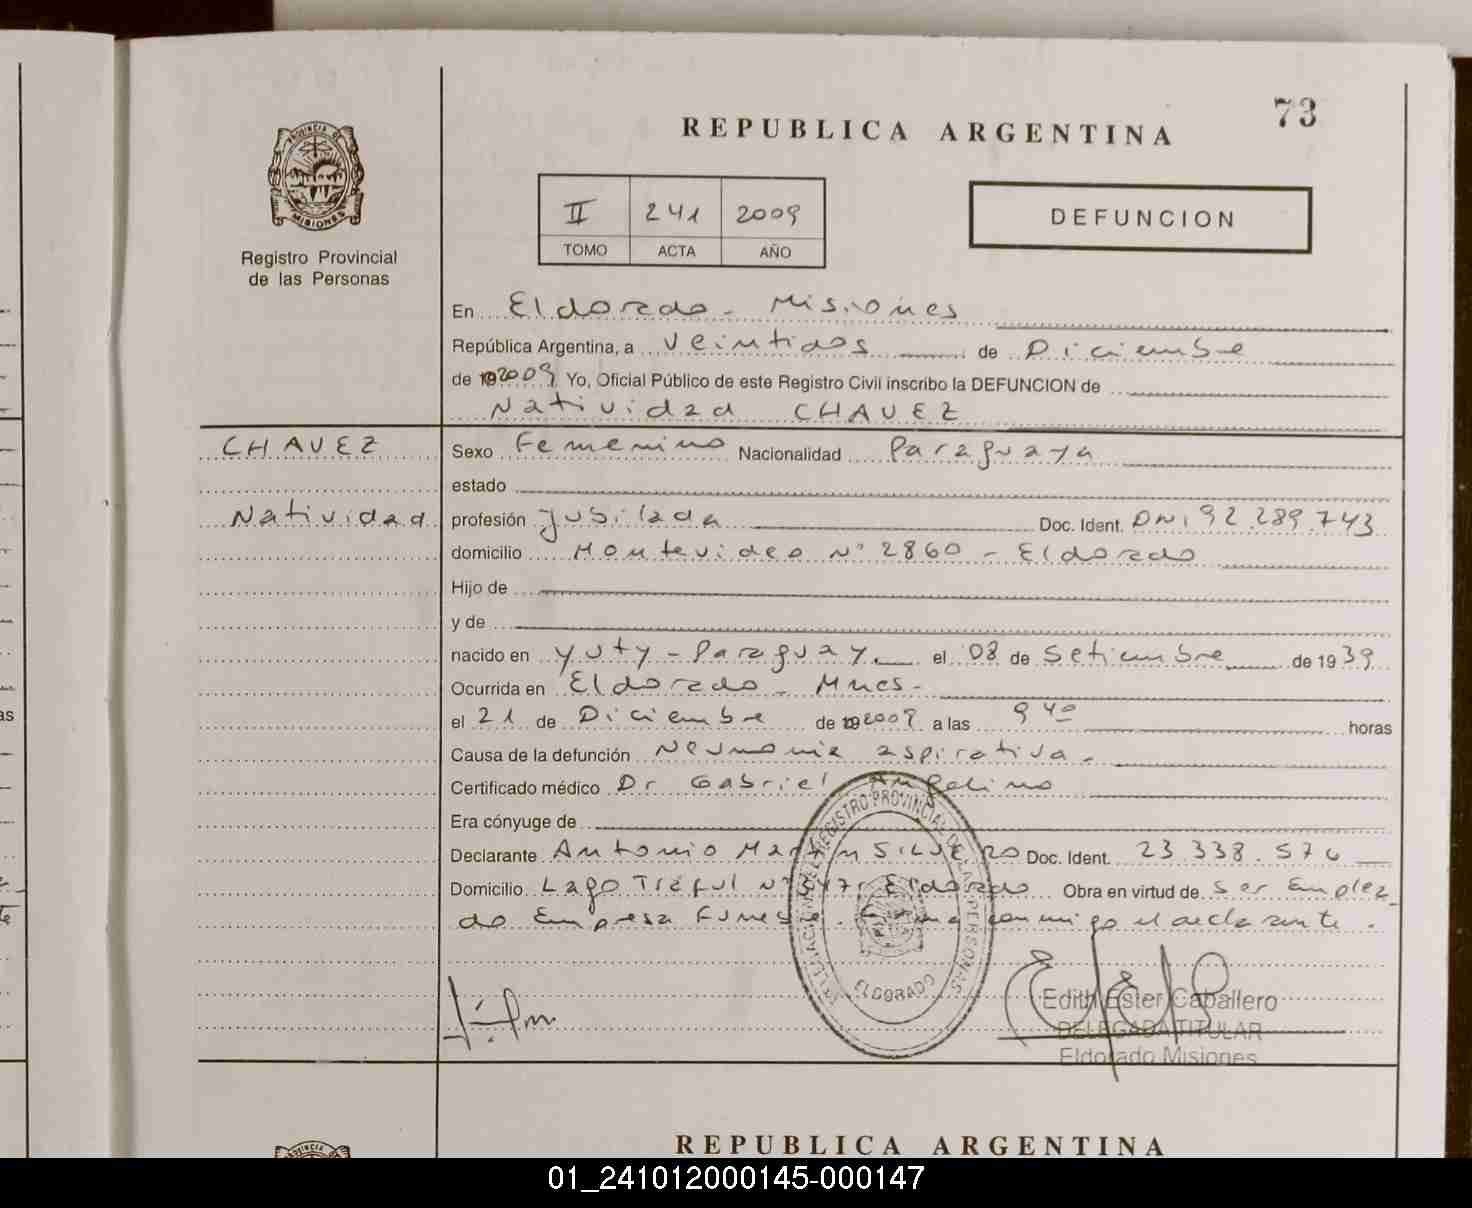 73
REPUBLICA ARGENTINA
PROVINCIA DE
MISIONES
Registro Provincial
de las Personas
II 241 2009
TOMO ACTA AÑO
DEFUNCION
En Eldorado - Misiones
República Argentina, a veintidos de Diciembre
de 2009 Yo, Oficial Público de este Registro Civil inscribo la DEFUNCION de
Natividad CHAVEZ
CHAVEZ
Natividad
Sexo Femenino Nacionalidad Paraguaya
estado
profesión jubilada Doc. Ident. DNI 92.289.743
domicilio Montevideo N° 2860 - Eldorado
Hijo de
y de
nacido en Yuty - Paraguay el 08 de Setiembre de 1939
Ocurrida en Eldorado - Mnes-
el 21 de Diciembre de 2009 a las 9 40 horas
Causa de la defunción Neumonia aspirativa -
Certificado médico Dr Gabriel Angelino
Era cónyuge de
Declarante Antonio Martin SILVERO Doc. Ident. 23.338.576
Domicilio Lago Traful N° Eldorado Obra en virtud de Ser Emplea
do Empresa Funebre. conmigo el declarante.
REGISTRO PROVINCIAL DE LAS PERSONAS
ELDORADO
Edith Ester Caballero
DELEGADA TITULAR
Eldorado Misiones
REPUBLICA ARGENTINA
01_241012000145-000147